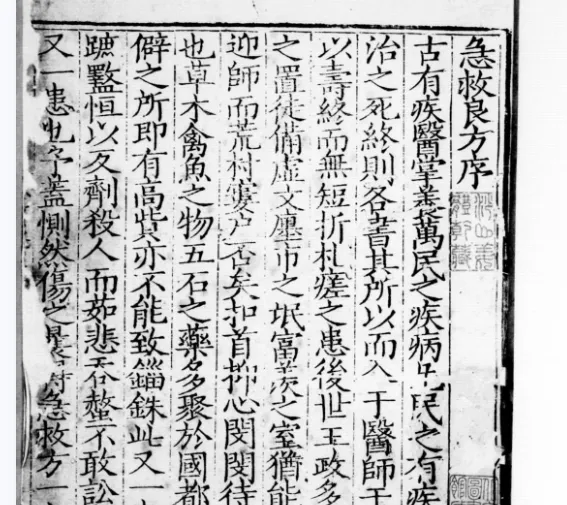 急救良方序
古有疾醫掌養萬民之疾病凡民之有疾
治之死終則各書其所以而入于醫師
以壽終而無短折札瘥之患後世王政多
之置徒備虛文廛市之氓富羨之室猶能
迎師而荒村窶戶否矣扣首抑心閔閔待
也草木禽魚之物五石之藥多聚於國都
僻之所即有高貲亦不能致錙銖此又一
蹠盭恒以攵劑殺人而茹悲吞螫不敢訟
又一患也予蓋惻然傷之 急救方一